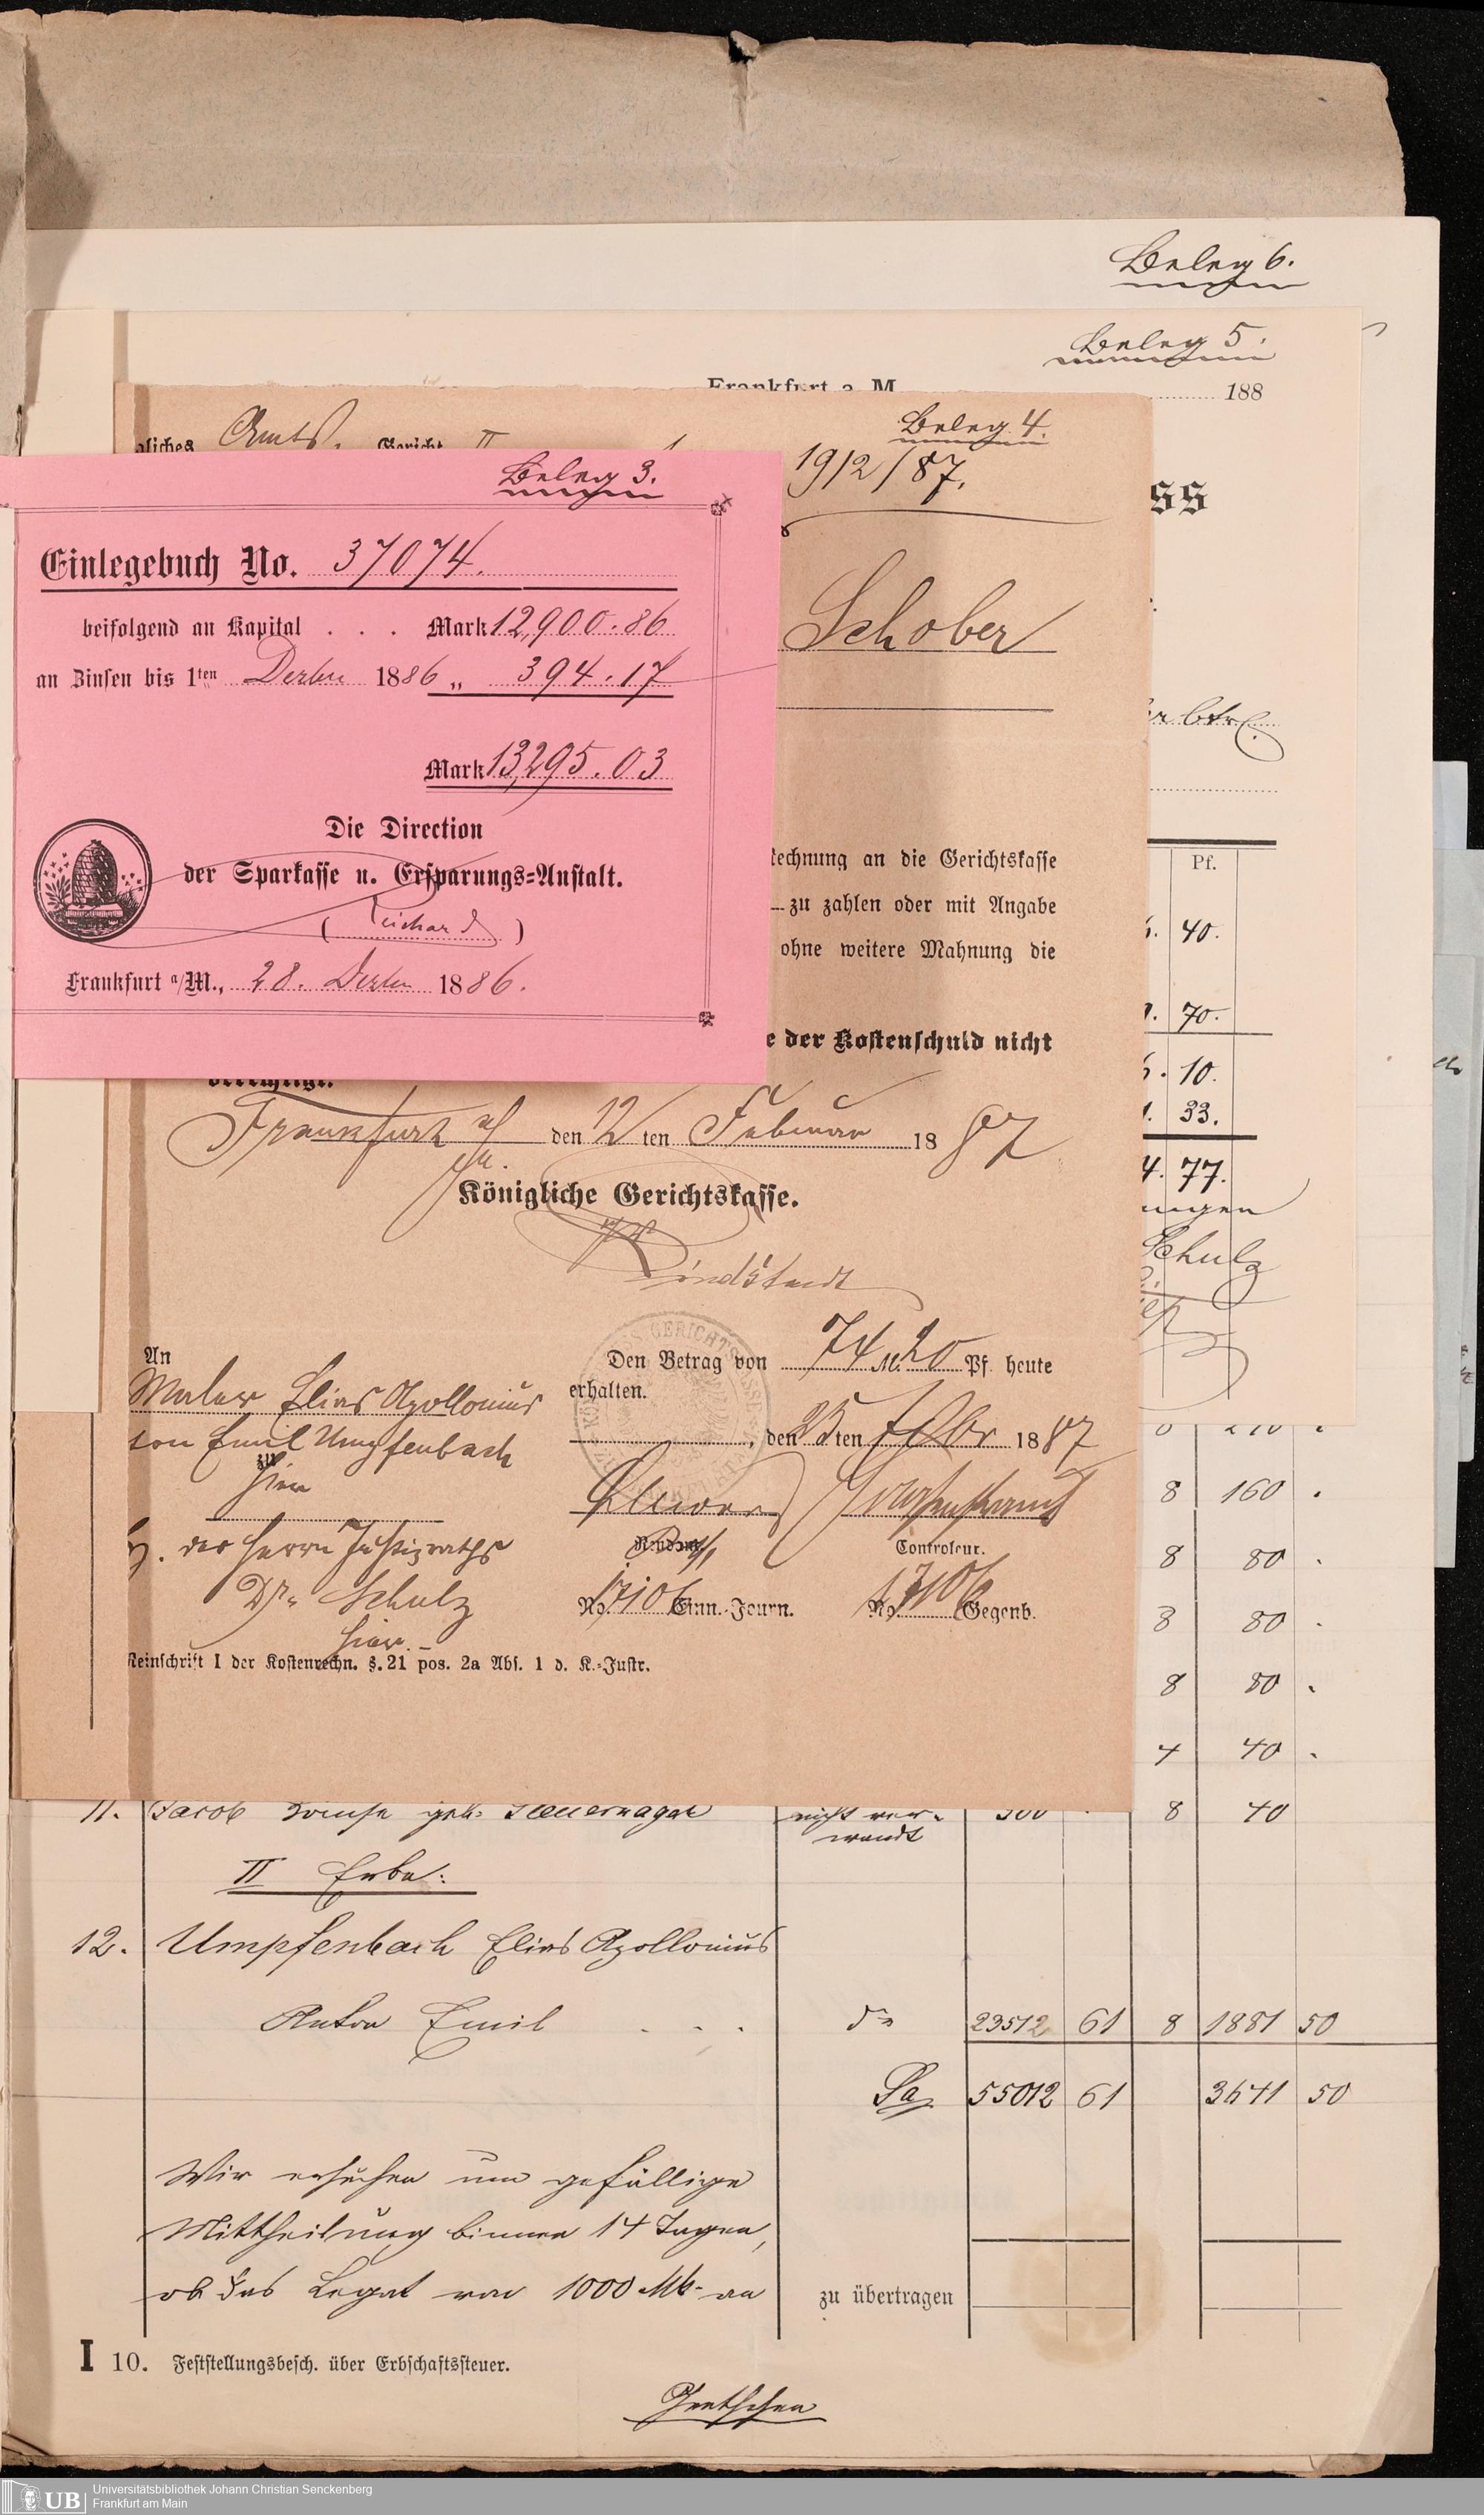 Beleg 6.
Beleg 5.
Frankfurt a. M.
188
Beleg 4.
gliches Amts. Gericht II
1912/87.
ss
Beleg 3.
Einlegebuch No. 37074.
beifolgend an Kapital . . . Mark 12,900.86
an Zinsen bis 1ten Dezbr 1886 „ 394.17
Mark 13,295.03
Die Direction
der Sparkasse u. Ersparungs=Anstalt.
(Reichard)
Frankfurt a/M., 28. Dezbr 1886.
Schober
Rechnung an die Gerichtskasse
zu zahlen oder mit Angabe
ohne weitere Mahnung die
e der Kostenschuld nicht
berechtigt.
Pf.
40.
70.
10.
33.
4. 77.
ungen
Schulz
Frankfurt a/M. den 12ten Februar 1887
Königliche Gerichtskasse.
Lindstaedt
An
Maler Elias Apollonius
ton Emil Umpfenbach
zu
hier
z. H. des Herrn Justizraths
Dr. Schulz
hier.
Den Betrag von 74 M. 20 Pf. heute
erhalten.
, den 25ten Febr 1887
Rendant.
Controleur.
No. 17106 Einn.-Journ.
No. 17106 Gegenb.
Reinschrift I der Kostenrechn. §. 21 pos. 2a Abs. 1 d. K.=Instr.
8 160 .
8 80 .
8 80 .
8 80 .
4 40 .
11. Jacob Louise geb. Steuernagel nicht ver- 500 . 8 40
wandt
II Erbe:
12. Umpfenbach Elias Apollonius
Anton Emil . . . do 23512 61 8 1881 50
Sa. 55012 61 3641 50
Wir ersuchen um gefällige
Mittheilung binnen 14 Tagen,
ob das Legat von 1000 Mk. an
zu übertragen
I 10. Feststellungsbesch. über Erbschaftssteuer.
Universitätsbibliothek Johann Christian Senckenberg
Frankfurt am Main
UB